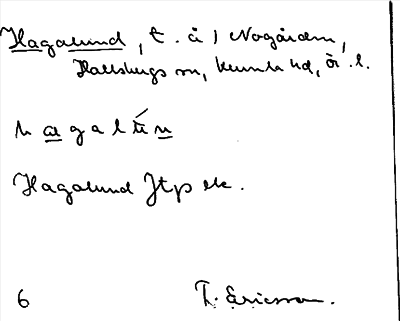 Hagalund, t. å 1 Nogården,
Hallsbergs sn, Kumla hd, Ör. l.
hagalún
Hagalund Jtp ek.
6 T. Ericsson.